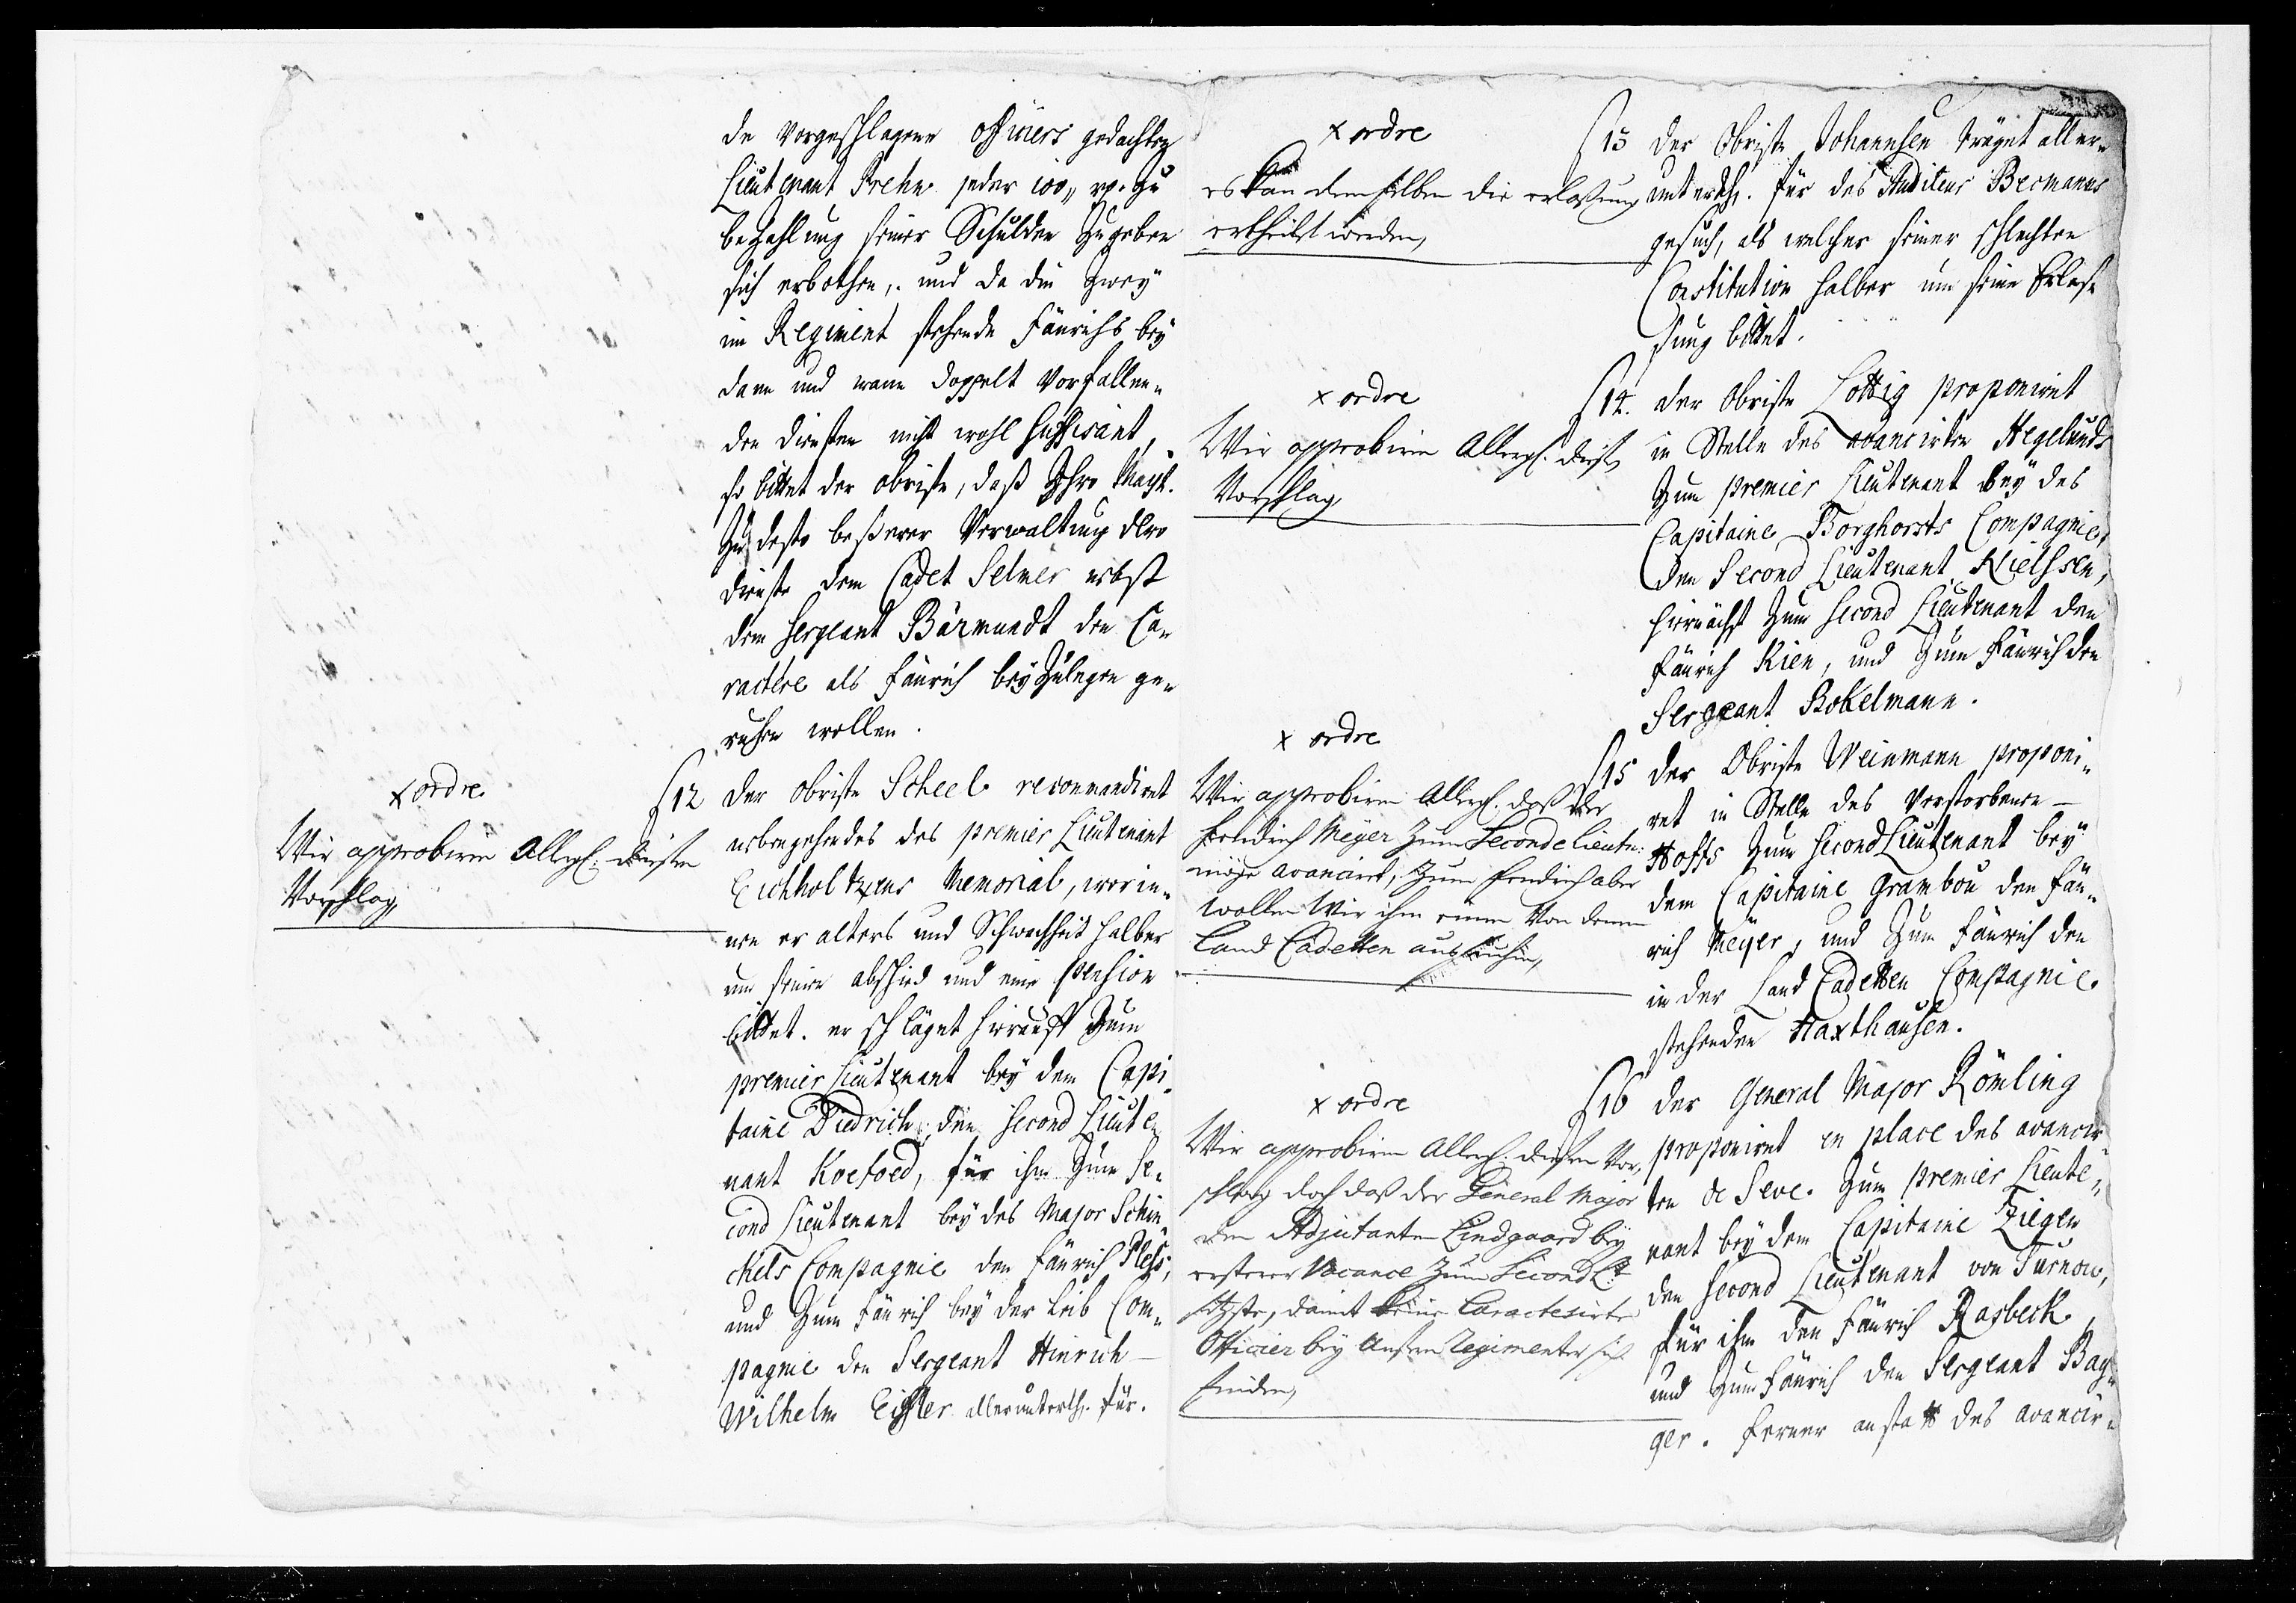 de vorgeschlagene officiers gedachten
Lieutenant Prehn jeder 100,, rp. zu
bezahlung seiner Schulden zugeben
sich erbothen, und da die zwey
im Regiment stehende Fänrichs bey
dann und wann doppelt vorfallen„
den diensten nicht wohl suffisant,
so bittet der obriste, daß Ihro Mayt.
zu desto beßerer Verwaltung dero
dienste dem Cadet Selmer nebst
dem Sergeant Bärmandt den Ca„
ractere als Fänrich beyzulegen ge„
ruhen wollen.
x ordre
Wir approbiren Allergh. diesen
Vorschlag,
§12 der obriste Scheel recommandiret
nebengehendes des premier Lieutenant
Eichholtzens Memorial, worin„
nen er alters und Schwachheit halber
um seinen abschied und eine pension
bittet. er schläget hierauff zum
premier Lieutenant bey dem Capi„
taine Diedrich, den Second Lieute„
nant Koefoed, für ihm zum Se„
cond Lieutenant bey des Major Schin„
ckels Compagnie den Fänrich Pless,
und zum Fänrich bey der Leib Com„
pagnie den Sergeant Hinrich
Wilhelm Eissler allerunterth. für.
x ordre
es kan demselben die erlaßung
ertheilet werden,
§13 der Obriste Johannsen träget aller„
unterth. für des Auditeur Becmanns
gesuch, als welcher seiner schlechten
Constitution halber um seine Erlas„
sung bittet.
x ordre
Wir approbiren Allergh. diesen
Vorschlag,
§14. der Obriste Lottig proponiret
in Stelle des avancirten Hegelunds
zum premier Lieutenant bey des
Capitaine Borghorsts Compagnie,
den Second Lieutenant Nielssen,
hiernächst zum Second Lieutenant den
Fänrich Kien, und zum Fänrich den
Sergeant Bokelmann.
x ordre
Wir approbiren Allergh. daß der
Fendrich Meyer zum Seconde Lieutn:
möge avanciret, zum Fendrich aber
wollen Wir ihm einen von denen
Land Cadetten aussuchen,
§15 der Obriste Weinmann proponi„
ret in Stelle des verstorbenen
Hoffs zum Second Lieutenant bey
dem Capitaine Grambou den Fän„
rich Meyer, und zum Fänrich den
in der Land Cadetten Compagnie
stehenden Haxthausen.
x ordre
Wir approbiren Allergh. diesen Vor„
schlag doch daß der General Major
den Adjutanten Lindgaard bey
ersterer Vacance zum Second Lt
setze, damit keine Caracterisirte
Officier bey Unsern Regimenter sich
finden,
§16 der General Major Römling
proponiret en place des avancir„
ten de Seve. zum premier Lieute„
nant bey dem Capitaine Ziegen
den Second Lieutenant von Turnow,
für ihm den Fänrich Rasbeck,
und zum Fänrich den Sergeant Bay„
ger. ferner anstatt des avancir„